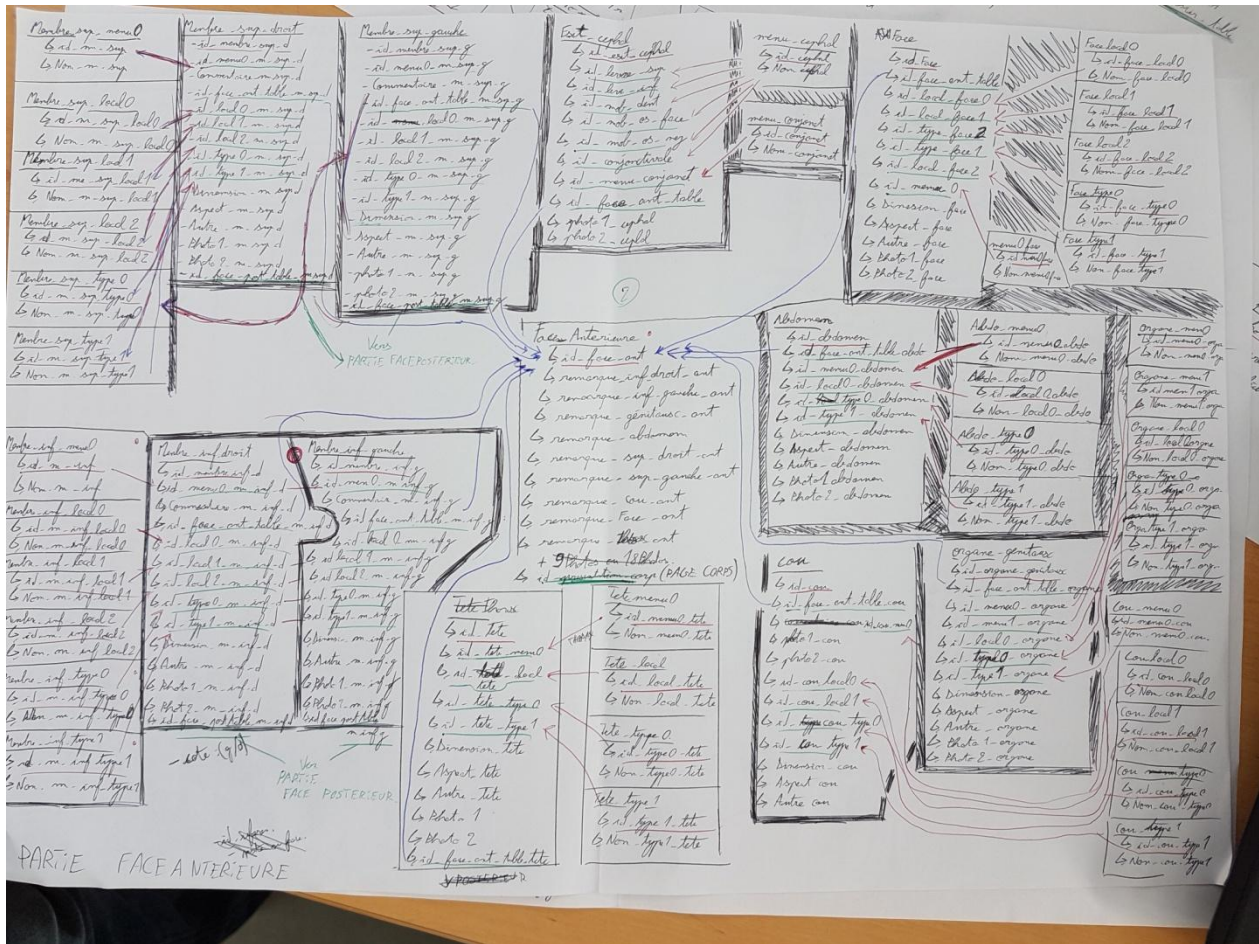 Membre_sup_menu0
↳ id_m_sup
↳ Nom_m_sup
Membre_sup_local0
↳ id_m_sup_local0
↳ Nom_m_sup_local0
Membre_sup_local1
↳ id_me_sup_local1
↳ Nom_m_sup_local1
Membre_sup_local2
↳ id_m_sup_local2
↳ Nom_m_sup_local2
Membre_sup_type0
↳ id_m_sup_type0
↳ Nom_m_sup_type
Membre_sup_type1
↳ id_m_sup_type1
↳ Nom_m_sup_type1
Membre_sup_droit
-id_membre_sup_d
-id_menu0_m_sup_d
-Commentaire_m_sup_d
-id_face_ant_table_m_sup_d
-id_local0_m_sup_d
-id_local1_m_sup_d
-id_local2_m_sup_d
-id_type0_m_sup_d
-id_type1_m_sup_d
-Dimension_m_sup_d
-Aspect_m_sup_d
-Autre_m_sup_d
-Photo1_m_sup_d
-Photo2_m_sup_d
-id_face_post_table_m_sup_d
Membre_sup_gauche
-id_membre_sup_g
-id_menu0_m_sup_g
-Commentaire_m_sup_g
-id_face_ant_table_m_sup_g
-id_local0_m_sup_g
-id_local1_m_sup_g
-id_local2_m_sup_g
-id_type0_m_sup_g
-id_type1_m_sup_g
-Dimension_m_sup_g
-Aspect_m_sup_g
-Autre_m_sup_g
-photo1_m_sup_g
-photo2_m_sup_g
-id_face_post_table_m_sup_g
Vers
PARTIE FACE POSTERIEUR
Eset_cephal
↳ id_eset_cephal
↳ id_levre_sup
↳ id_levre_inf
↳ id_mob_dent
↳ id_mob_os_face
↳ id_mob_os_nez
↳ id_conjonctivale
↳ id_menu_conjonct
↳ id_face_ant_table
↳ photo1_cephal
↳ photo2_cephal
menu_cephal
↳ id_cephal
↳ Nom_cephal
menu_conjonct
↳ id_conjonct
↳ Nom_conjonct
Face
↳ id_Face
↳ id_face_ant_table
↳ id_local_face0
↳ id_local_face1
↳ id_type_face2
↳ id_type_face1
↳ id_local_face2
↳ id_menu0
↳ Dimension_face
↳ Aspect_face
↳ Autre_face
↳ Photo1_face
↳ Photo2_face
menu0face
↳ id_menu0fa
↳ Nom menu0fa
Face local0
↳ id_face_local0
↳ Nom_face_local0
Face_local1
↳ id_face_local1
↳ Nom_face_local1
Face local2
↳ id_face_local2
↳ Nom_face_local2
Face type0
↳ id_face_type0
↳ Nom_face_type0
Face type1
↳ id_face_type1
↳ Nom_face_type1
2
Face Anterieure
↳ id_face_ant
↳ remarque_inf_droit_ant
↳ remarque_inf_gauche_ant
↳ remarque_génitaux_ant
↳ remarque_abdomen
↳ remarque_sup_droit_ant
↳ remarque_sup_gauche_ant
↳ remarque_cou_ant
↳ remarque_Face_ant
↳ remarque_Thorax_ant
+ 9 Photos ou 18 Photos
(PAGE CORPS)
Abdomen
↳ id_abdomen
↳ id_face_ant_table_abdo
↳ id_menu0_abdomen
↳ id_local0_abdomen
↳ id_type0_abdomen
↳ id_type1_abdomen
↳ Dimension_abdomen
↳ Aspect_abdomen
↳ Autre_abdomen
↳ Photo1_abdomen
↳ Photo2_abdomen
Abdo_menu0
↳ id_menu0_abdo
↳ Nom_menu0_abdo
Abdo_local0
↳ id_local0_abdo
↳ Nom_local0_abdo
Abdo_type0
↳ id_type0_abdo
↳ Nom_type0_abdo
Abdo_type1
↳ id_type1_abdo
↳ Nom_type1_abdo
Organe_menu0
↳ id_menu0_orga
↳ Nom_menu0_orga
Organe_menu1
↳ id menu1_orga
↳ Nom_menu1_orga
Organe_local0
↳ id_local0orgne
↳ Nom_local0_orgne
Orga_type0
↳ id_type0_orga
↳ Nom_type0_orga
Orga_type1_orga
↳ id_type1_orga
↳ Nom_type1_orga
Membre_inf_menu0
↳ id_m_inf
↳ Nom_m_inf
Membre_inf_local0
↳ id_m_inf_local0
↳ Nom_m_inf_local0
Membre_inf_local1
↳ id_m_inf_local1
↳ Nom_m_inf_local1
Membre_inf_local2
↳ id_m_inf_local2
↳ Nom_m_inf_local2
Membre_inf_type0
↳ id_m_inf_type0
↳ Nom_m_inf_type0
Membre_inf_type1
↳ id_m_inf_type1
↳ Nom_m_inf_type1
Membre_inf_droit
↳ id_membre_inf_d
↳ id_menu0_m_inf_d
↳ Commentaire_m_inf_d
↳ id_face_ant_table_m_inf_d
↳ id_local0_m_inf_d
↳ id_local1_m_inf_d
↳ id_local2_m_inf_d
↳ id_type0_m_inf_d
↳ id_type1_m_inf_d
↳ Dimension_m_inf_d
↳ Autre_m_inf_d
↳ Photo1_m_inf_d
↳ Photo2_m_inf_d
↳ id_face_post table_m_inf_d
Membre_inf_gauche
↳ id_membre_inf_g
↳ id_menu0_m_inf_g
↳ Commentaire_m_inf_g
↳ id_face_ant_table_m_inf_g
↳ id_local0_m_inf_g
↳ id local1_m_inf_g
↳ id local2_m_inf_g
↳ id_type0_m_inf_g
↳ id_type1_m_inf_g
↳ Dimension_m_inf_g
↳ Autre_m_inf_g
↳ Photo1_m_inf_g
↳ Photo2_m_inf_g
↳ id face post table
m_inf_g
- cote (g/d)
Vers
PARTIE
FACE POSTERIEUR
Tete Thorax
↳ id_Tete
↳ id_tet_menu0
↳ id_local
tete
↳ id_tete_type0
↳ id_tete_type1
↳ Dimension_tete
↳ Aspect_tete
↳ Autre_tete
↳ Photo 1
↳ Photo 2
↳ id_face_ant_table_tete
THORAX
Tete menu0
↳ id_menu0_tete
↳ Nom_menu0_tete
Tete_local
↳ id_local_tete
↳ Nom_local_tete
Tete_type0
↳ id_type0_tete
↳ Nom_type0_tete
Tete_type1
↳ id_type1_tete
↳ Nom_type1_tete
cou
↳ id_cou
↳ id_face_ant_table_cou
↳ id_cou_menu0
↳ photo1_cou
↳ photo2_cou
↳ id_cou_local0
↳ id_cou_local1
↳ id_cou_type0
↳ id_cou_type1
↳ Dimension_cou
↳ Aspect cou
↳ Autre cou
organe_génitaux
↳ id_organe_genitaux
↳ id_face_ant_table_organe
↳ id_menu0_organe
↳ id_menu1_organe
↳ id_local0_organe
↳ id_type0_organe
↳ id_type1_organe
↳ Dimension_organe
↳ Aspect_organe
↳ Autre_organe
↳ Photo1_organe
↳ Photo2_organe
Cou_menu0
↳ id_menu0_cou
↳ Nom_menu0_cou
Cou local0
↳ id_cou_local0
↳ Nom_cou local0
Cou_local1
↳ id_cou_local1
↳ Nom_cou_local1
Cou type0
↳ id_cou_type0
↳ Nom_cou_type0
Cou_type1
↳ id_cou_type1
↳ Nom_cou_type1
PARTIE FACE ANTERIEURE